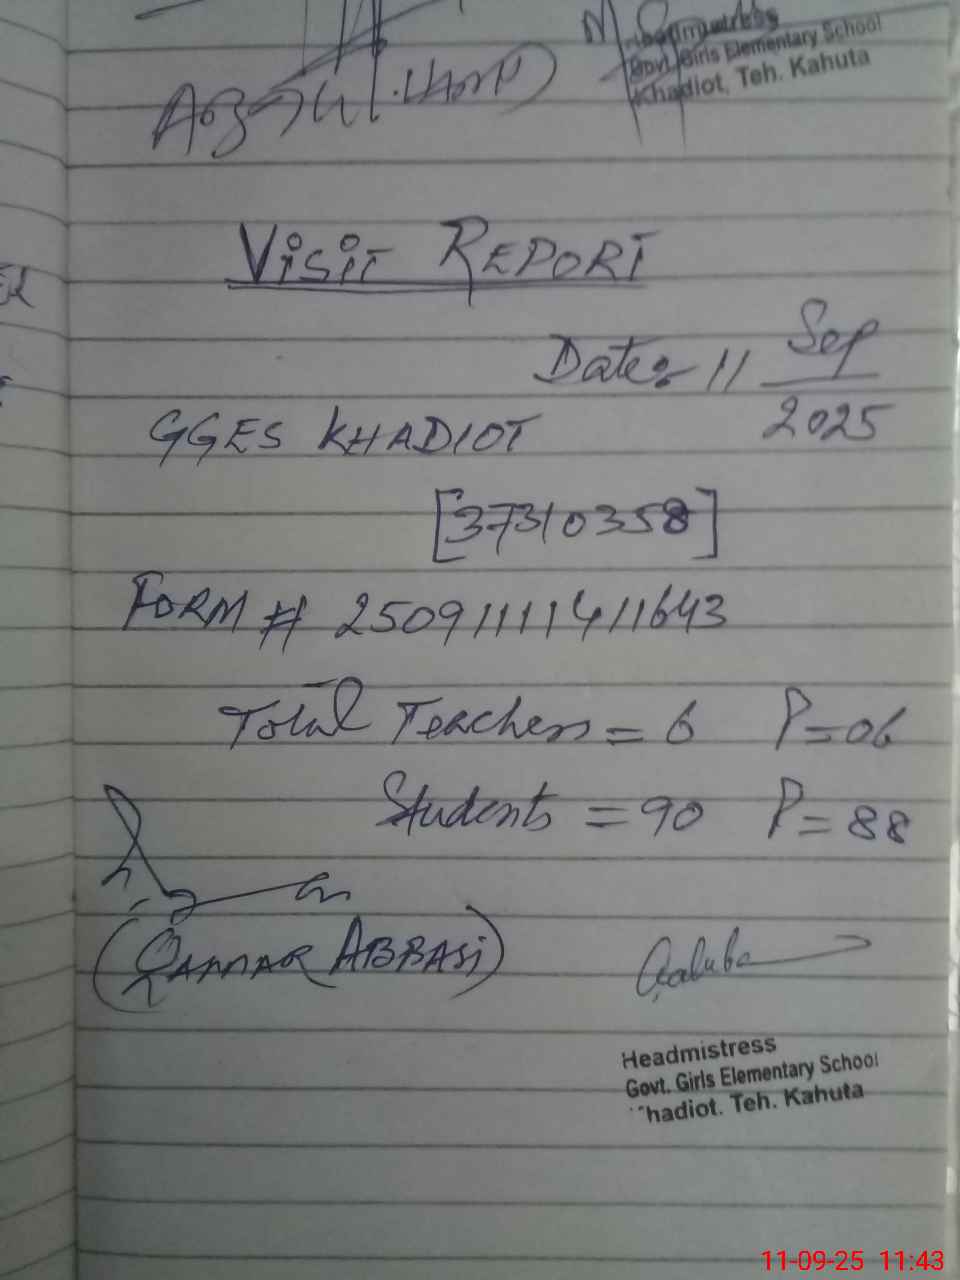 Headmistress
Govt. Girls Elementary School
Khadiot, Teh. Kahuta
VISIT REPORT
Date:- 11 Sep
2025
GGES KHADIOT
[37310358]
FORM # 250911111411643
Total Teachers = 6 P=06
Students = 90 P=88
(QAMAR ABBASi)
Headmistress
Govt. Girls Elementary School
hadiot. Teh. Kahuta
11-09-25 11:43